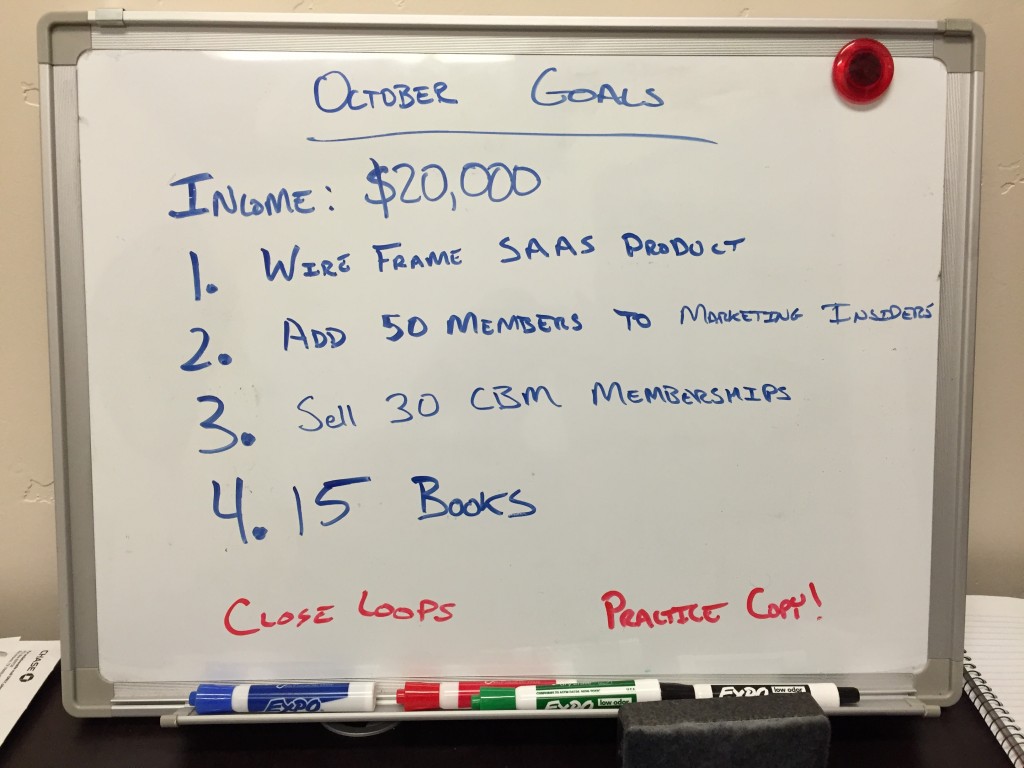 OCTOBER GOALS
INCOME: $20,000
1. WIRE FRAME SAAS PRODUCT
2. ADD 50 MEMBERS TO MARKETING INSIDERS
3. Sell 30 CBM MEMBERSHIPS
4. 15 BOOKS
CLOSE LOOPS PRACTICE COPY!
CHASE
EXPO
EXPO low odor
EXPO low odor